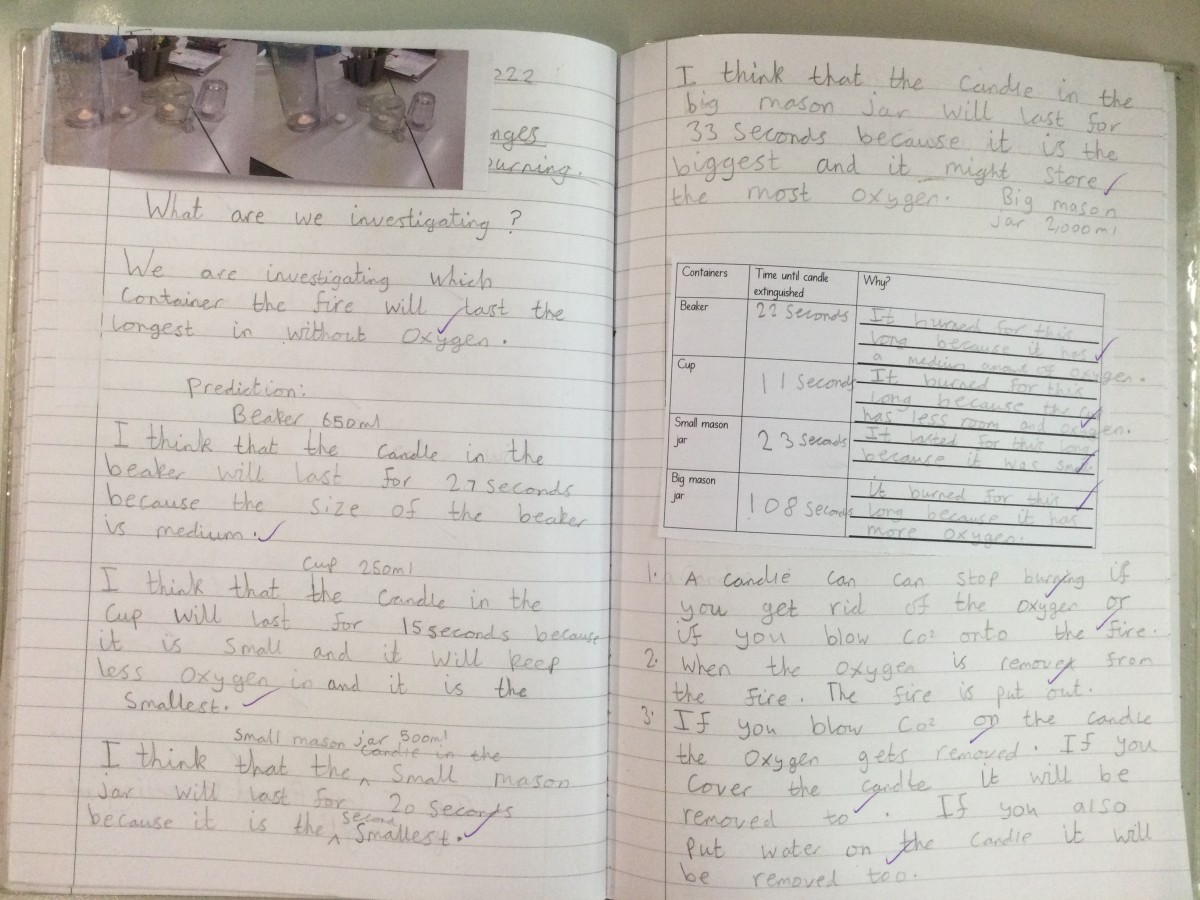 222
nges
urning.
What are we investigating?
We are investigating which
container the fire will last the
longest in without oxygen.
Prediction:
Beaker 650ml
I think that the candle in the
beaker will last for 27 seconds
because the size of the beaker
is medium.
Cup 250ml
I think that the candle in the
cup will last for 15 seconds because
it is small and it will keep
less oxygen in and it is the
smallest.
Small mason jar 500ml
candle in the
I think that the ^ small mason
jar will last for 20 seconds
second
because it is the ^ smallest.
I think that the candle in the
big mason jar will last for
33 seconds because it is the
biggest and it might store
the most oxygen. Big mason
jar 2,000ml
Containers Time until candle extinguished Why?
Beaker 22 seconds It burned for this
long because it has
a medium amount of oxygen.
Cup 11 seconds It burned for this
long because the cup
has less room and oxygen.
Small mason jar 23 seconds It lasted for this long
because it was
Big mason jar 108 seconds it burned for this
long because it has
more oxygen.
1. A candle can can stop burning if
you get rid of the oxygen or
if you blow Co² onto the fire.
2. When the oxygen is removed from
the fire. The fire is put out.
3. If you blow Co² on the candle
the oxygen gets removed. If you
cover the candle it will be
removed to. If you also
put water on the candle it will
be removed too.